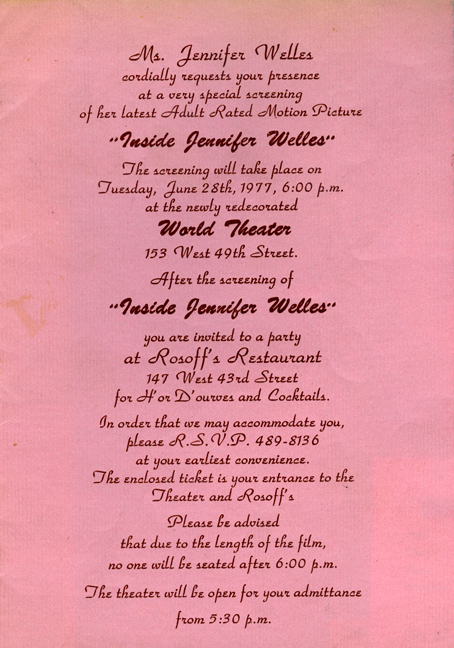 Ms. Jennifer Welles
cordially requests your presence
at a very special screening
of her latest Adult Rated Motion Picture
"Inside Jennifer Welles"
The screening will take place on
Tuesday, June 28th, 1977, 6:00 p.m.
at the newly redecorated
World Theater
153 West 49th Street.
After the screening of
"Inside Jennifer Welles"
you are invited to a party
at Rosoff's Restaurant
147 West 43rd Street
for H'or D'ourves and Cocktails.
In order that we may accommodate you,
please R.S.V.P. 489-8136
at your earliest convenience.
The enclosed ticket is your entrance to the
Theater and Rosoff's
Please be advised
that due to the length of the film,
no one will be seated after 6:00 p.m.
The theater will be open for your admittance
from 5:30 p.m.